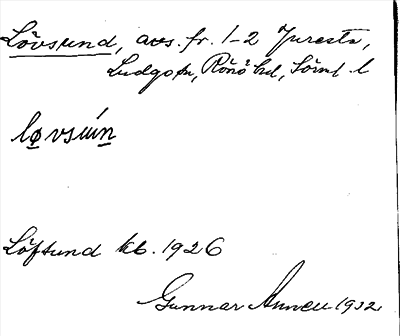 Lövsund, avs. fr. 1-2 Juresta,
Ludgo sn, Rönö hd, Sörml. l
løvsun
Löfsund kb. 1926
Gunnar 1932